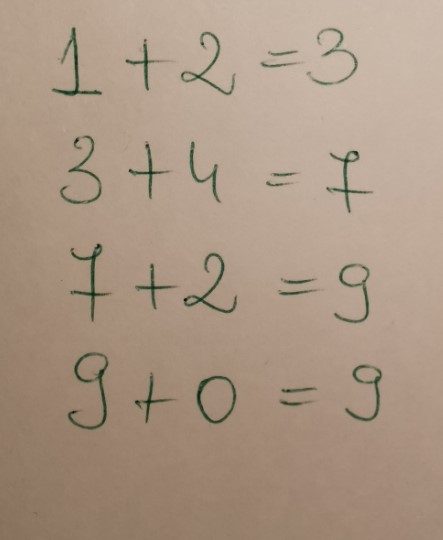 1 + 2 = 3
3 + 4 = 7
7 + 2 = 9
9 + 0 = 9